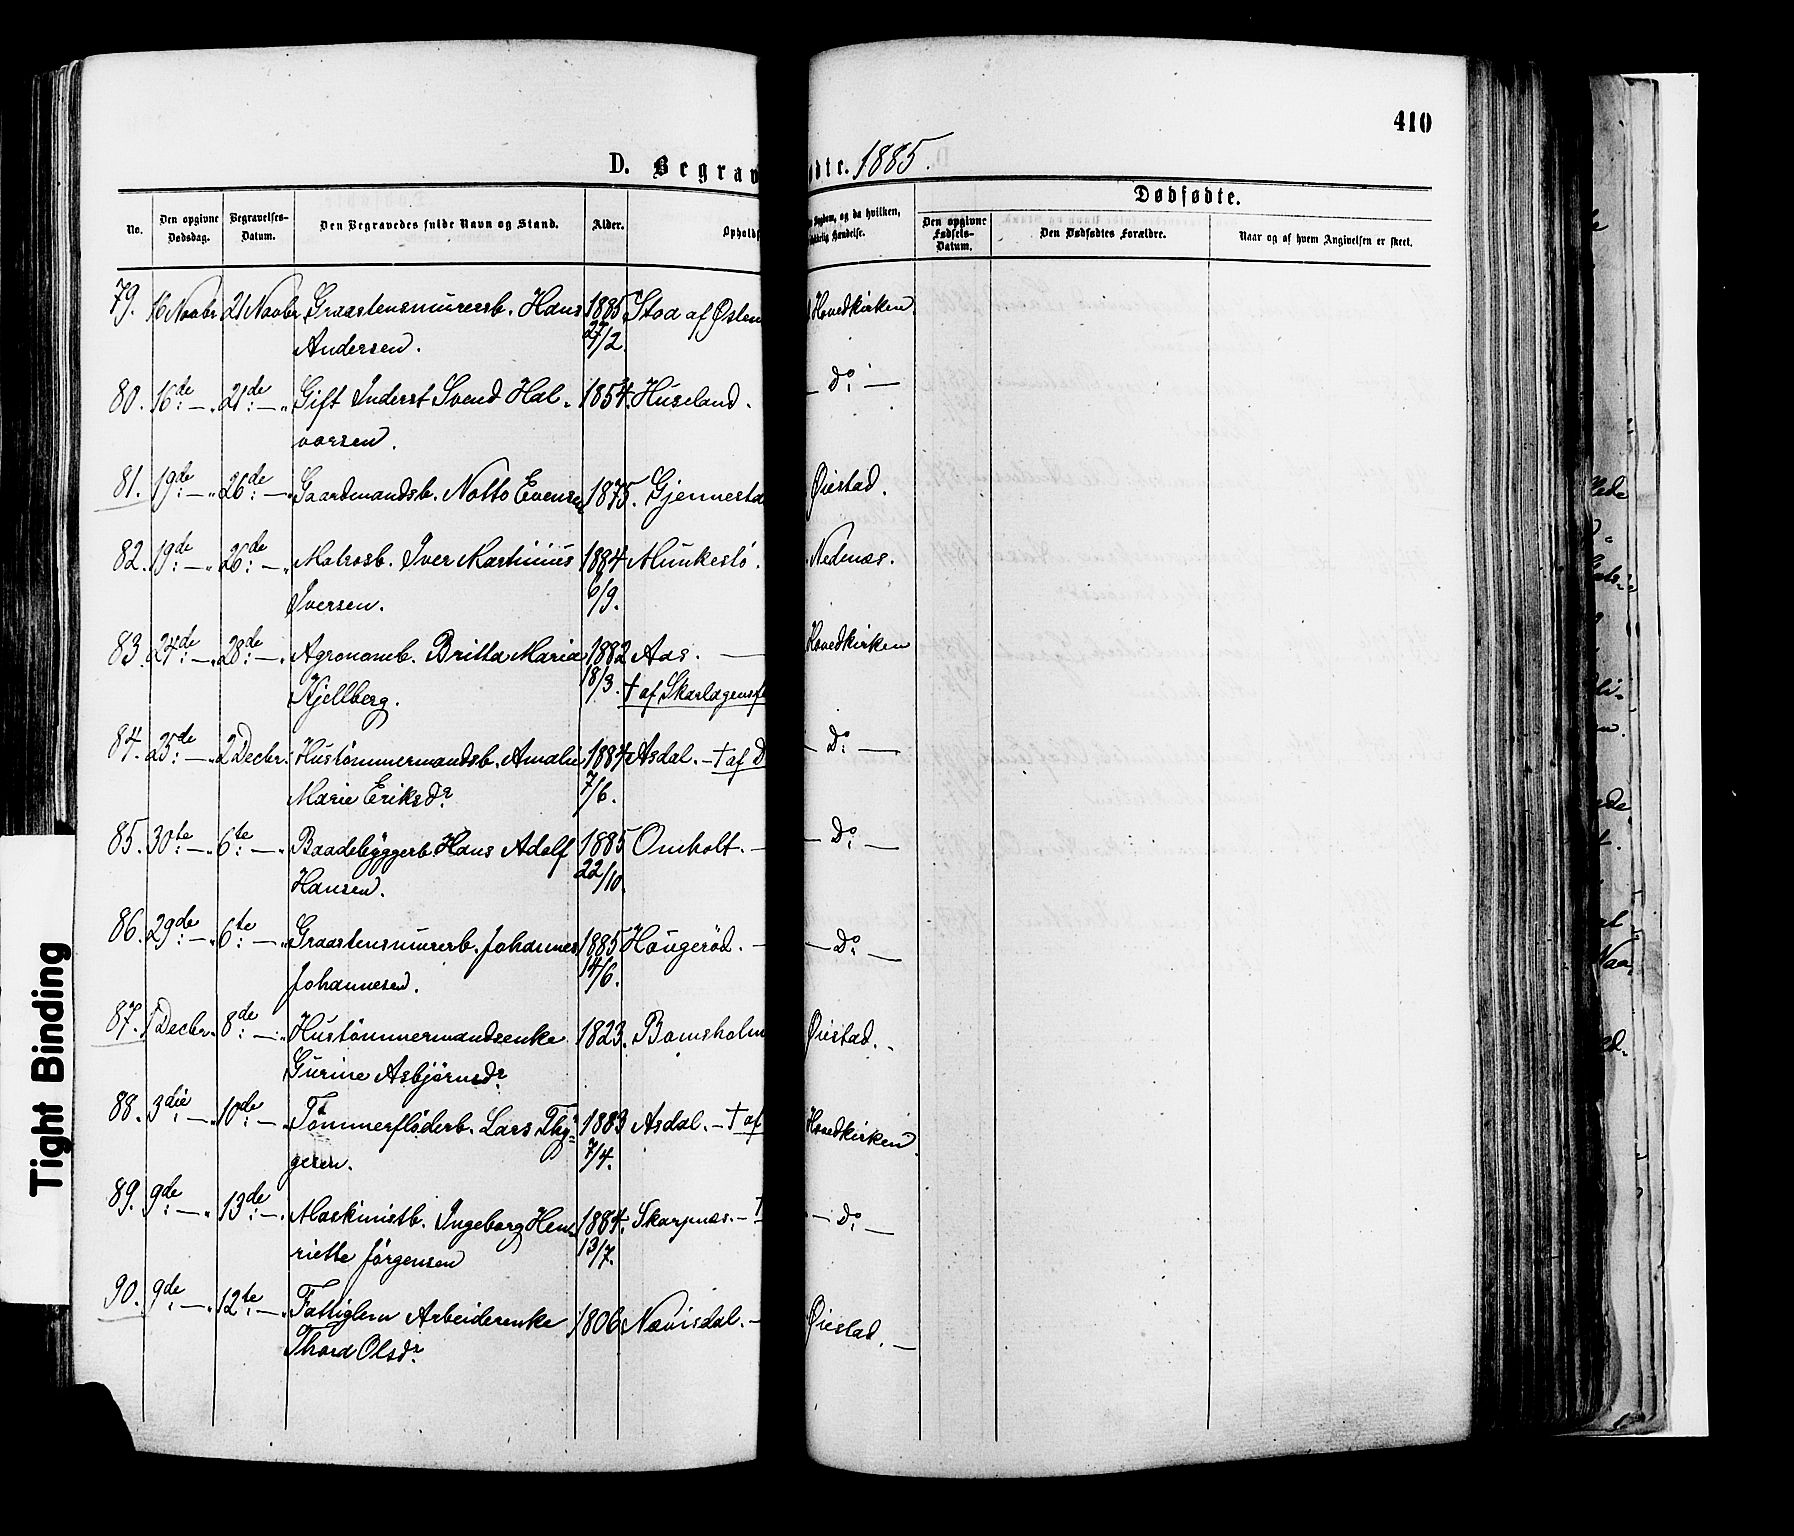 410
D. Begrav
dte. 1885.
No.
Den opgivne Dødsdag.
Begravelses-Datum.
Den Begravedes fulde Navn og Stand.
Alder.
Opholds
Sygdom, og da hvilken,
Hændelse.
Dødfødte.
Den opgivne Fødsels-Datum.
Den Dødfødtes Forældre.
Naar og af hvem Angivelsen er skeet.
79. 16 Novbr 21 Novbr. Graastensmurersb. Hans 1885 Stoa af Østen Hovedkirken.
Andersen. 27/2.
80. 16de: —„ 21de: —„ Gift Inderst Svend Hal- 1854. Huseland. — Do: —
vorsen.
81. 19de: —„ 26de: —„ Gaardmandsb. Notto Evensen 1875. Gjennesta Øiestad.
82. 19de: —„ 26de: —„ Matrosb. Iver Martinius 1884 Munkestö. Nednæs.
Iversen. 6/9.
83. 24de: —„ 28de: —„ Agronomb. Britta Maria 1882 Aas. — Hovedkirken
Kjellberg. 18/3. † af Skarlagensf
84. 25de: —„ 2 Decbr. Hustømmermandsb. Amalie 1884 Asdal. — † af D — Do: —
Marie Eriksdr 7/6.
85. 30te: —„ 6te: —„ Baadebyggerb. Hans Adolf 1885 Omholt. — — Do: —
Hansen. 22/10.
86. 29de: —„ 6te: —„ Graastensmurerb. Johannes 1885 Hougerød. — — Do: —
Johannesen. 14/6.
87. 1 Decbr. 8de: —„ Hustømmermandsenke 1823. Bomsholm Øiestad. —
Gurine Asbjørnsdr
88. 3die: —„ 10de: —„ Tømmerfløderb. Lars Thy- 1883 Asdal. — † af Hovedkirken.
gesen. 7/4.
89. 9de: —„ 13de: —„ Maskinistb. Ingeborg Hen- 1884. Skarpnæs. — † — Do: —
riette Jørgensen 13/7.
90. 9de: —„ 12te: —„ Fattiglem Arbeiderenke 1806 Nævisdal. — Øiestad. —
Thora Olsdr
Tight Binding